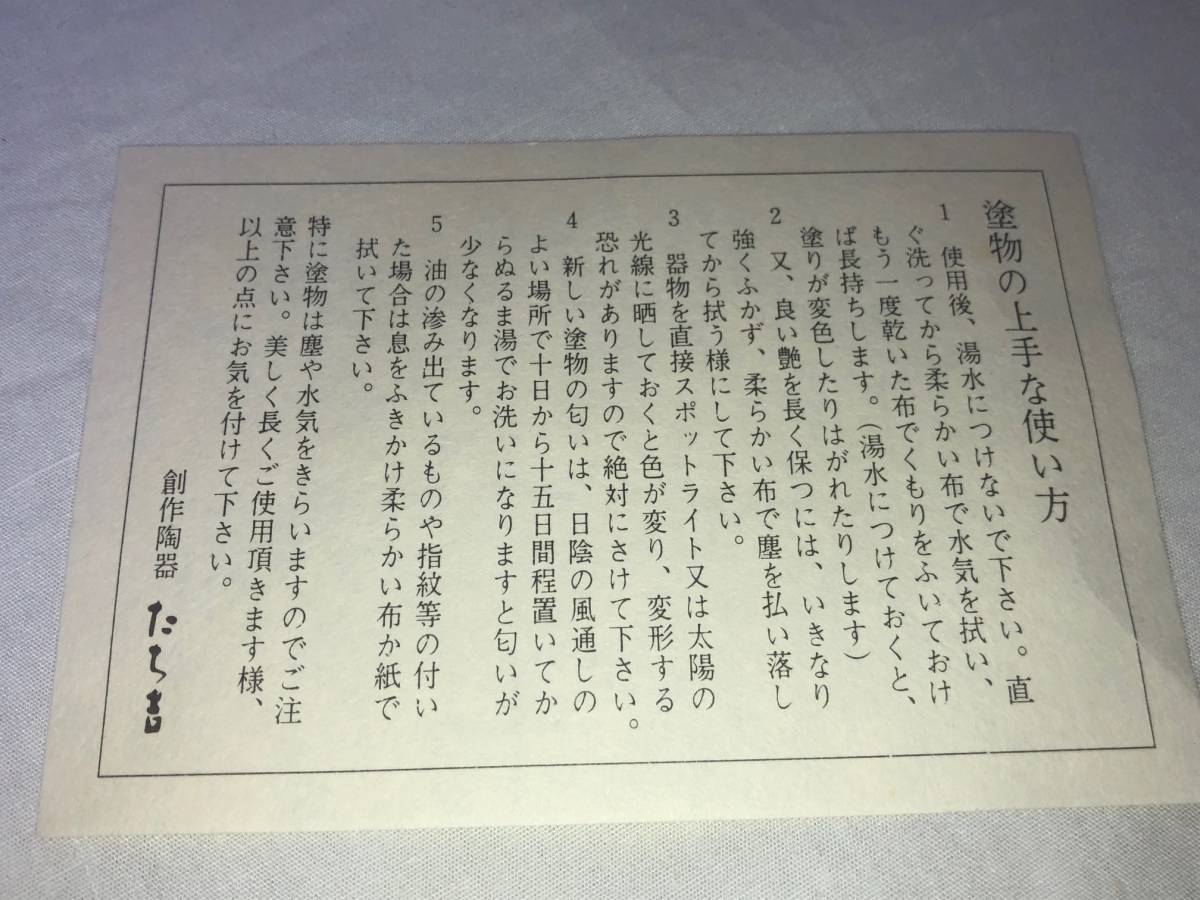 塗物の上手な使い方
1　使用後、湯水につけないで下さい。直
ぐ洗ってから柔らかい布で水気を拭い、
もう一度乾いた布でくもりをふいておけ
ば長持ちします。（湯水につけておくと、
塗りが変色したりはがれたりします）
2　又、良い艶を長く保つには、いきなり
強くふかず、柔らかい布で塵を払い落し
てから拭う様にして下さい。
3　器物を直接スポットライト又は太陽の
光線に晒しておくと色が変り、変形する
恐れがありますので絶対にさけて下さい。
4　新しい塗物の匂いは、日陰の風通しの
よい場所で十日から十五日間程置いてか
らぬるま湯でお洗いになりますと匂いが
少なくなります。
5　油の滲み出ているものや指紋等の付い
た場合は息をふきかけ柔らかい布か紙で
拭いて下さい。
特に塗物は塵や水気をきらいますのでご注
意下さい。美しく長くご使用頂きます様、
以上の点にお気を付けて下さい。
創作陶器　たち吉